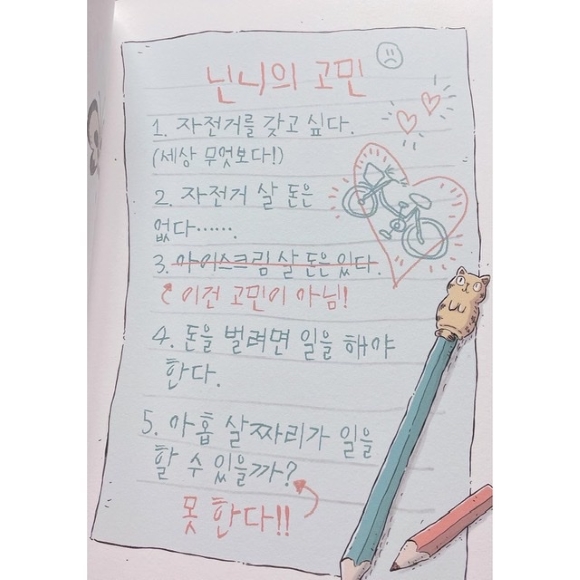 닌니의 고민
1. 자전거를 갖고 싶다.
(세상 무엇보다!)
2. 자전거 살 돈은
없다…….
3. 아이스크림 살 돈은 있다.
이건 고민이 아님!
4. 돈을 벌려면 일을 해야
한다.
5. 아홉 살짜리가 일을
할 수 있을까?
못 한다!!